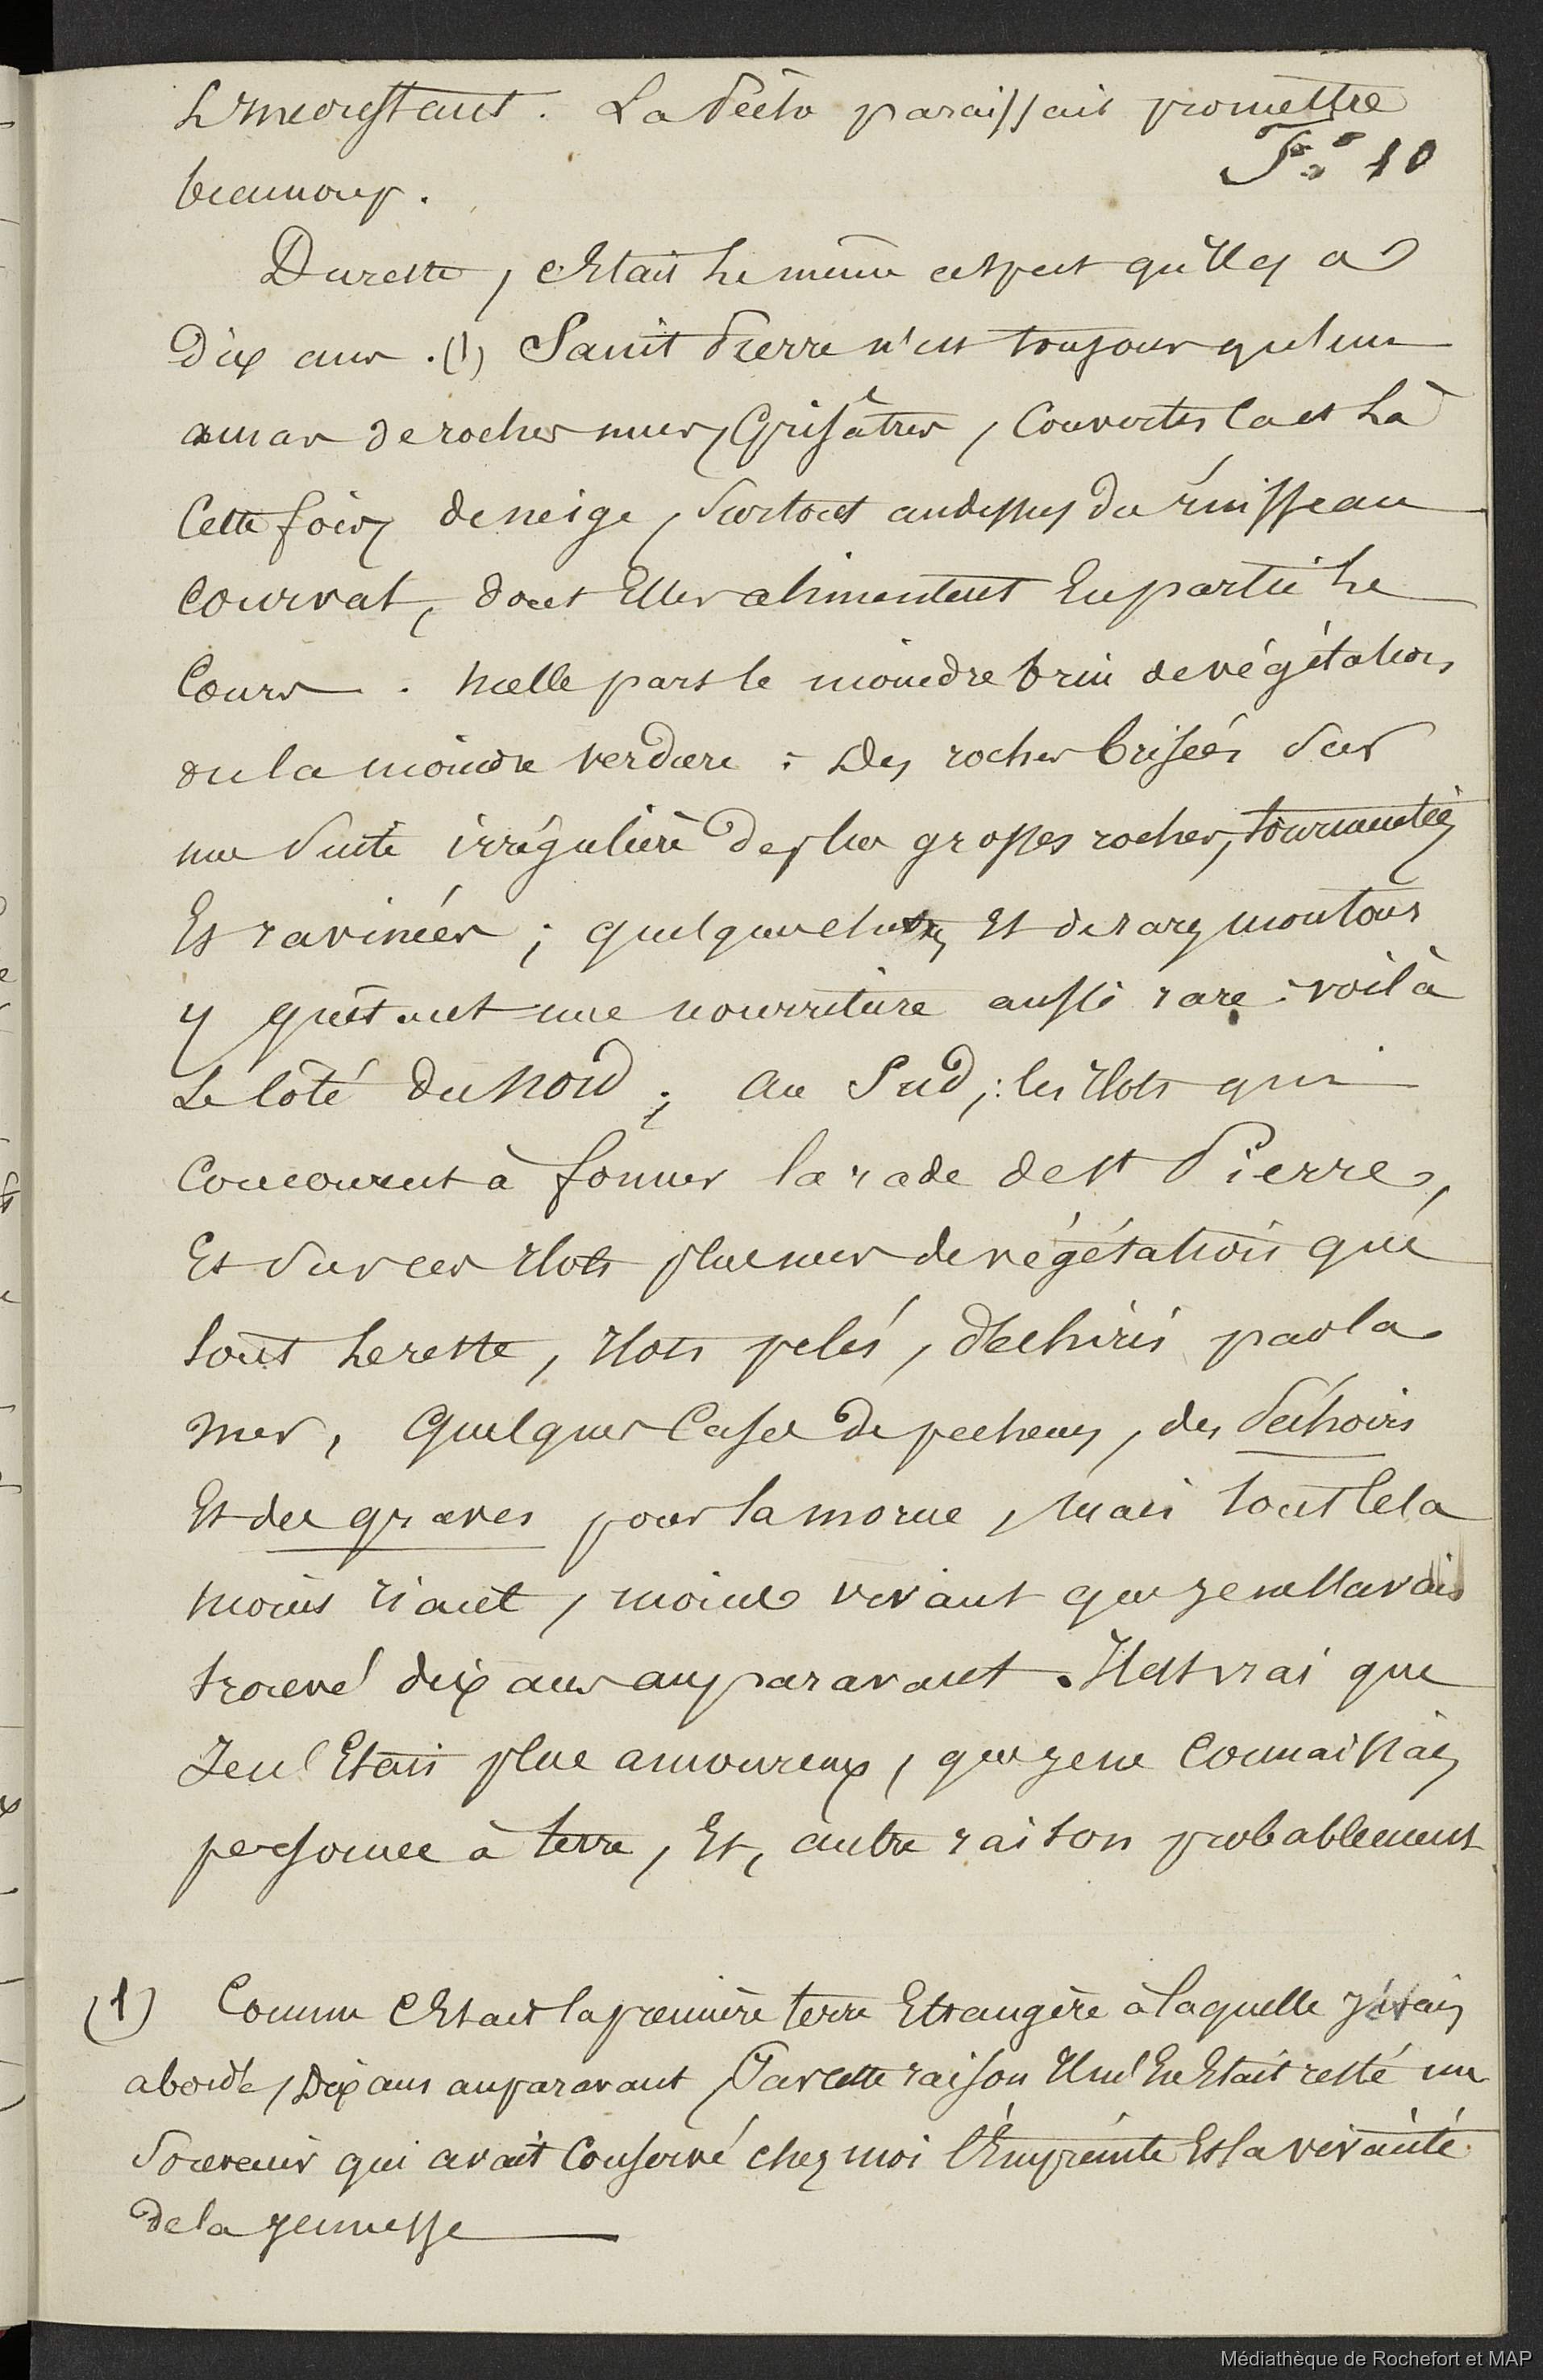 L'inconstant. La Pêche paraissait promettre
F.° 10
beaucoup.
Dureste, c'Etait le même aspect qu'il y a
Dix ans. (1) Saint Pierre n'est toujours qu'un
amas de roches nues, Grisâtres, Couvertes ca et Là
Cette fois de neige, Surtout audessus du ruisseau
Courval, dont Elles alimentent En partie le
Cours. nulle part le moindre brin de végétation,
ou la moindre verdure : Des roches brisées Sur
une Suite irrégulière de plus grosses roches, tourmentées
Et ravinées ; quelques chèvres Et de rares moutons
y quêtent une nourriture aussi rare : voilà
Le Côté du Nord ; Au Sud ; les Ilots qui
Concourent à former la rade de St Pierre,
Et Sur ces Ilots plus nus de végétation que
tout le reste, Ilots pelés, déchirés par la
Mer, Quelques Cases de pecheurs, des Séchoirs
Et des graves pour la morue, Mais tout Cela
Moins riant, moins vivant que je ne l'avais
trouvé dix ans auparavant. Il est vrai que
Je n'Etais plus amoureux, que je ne Connaissais
personne à terre, Et, autre raison probablement
(1) Comme C'Etait la première terre Etrangère à laquelle j'étais
abordé, Dix ans auparavant, Par cette raison Il m'En Etait resté un
Souvenir qui avait Conservé chez moi l'Empreinte Et la vivacité
de la jeunesse
Médiathèque de Rochefort et MAP